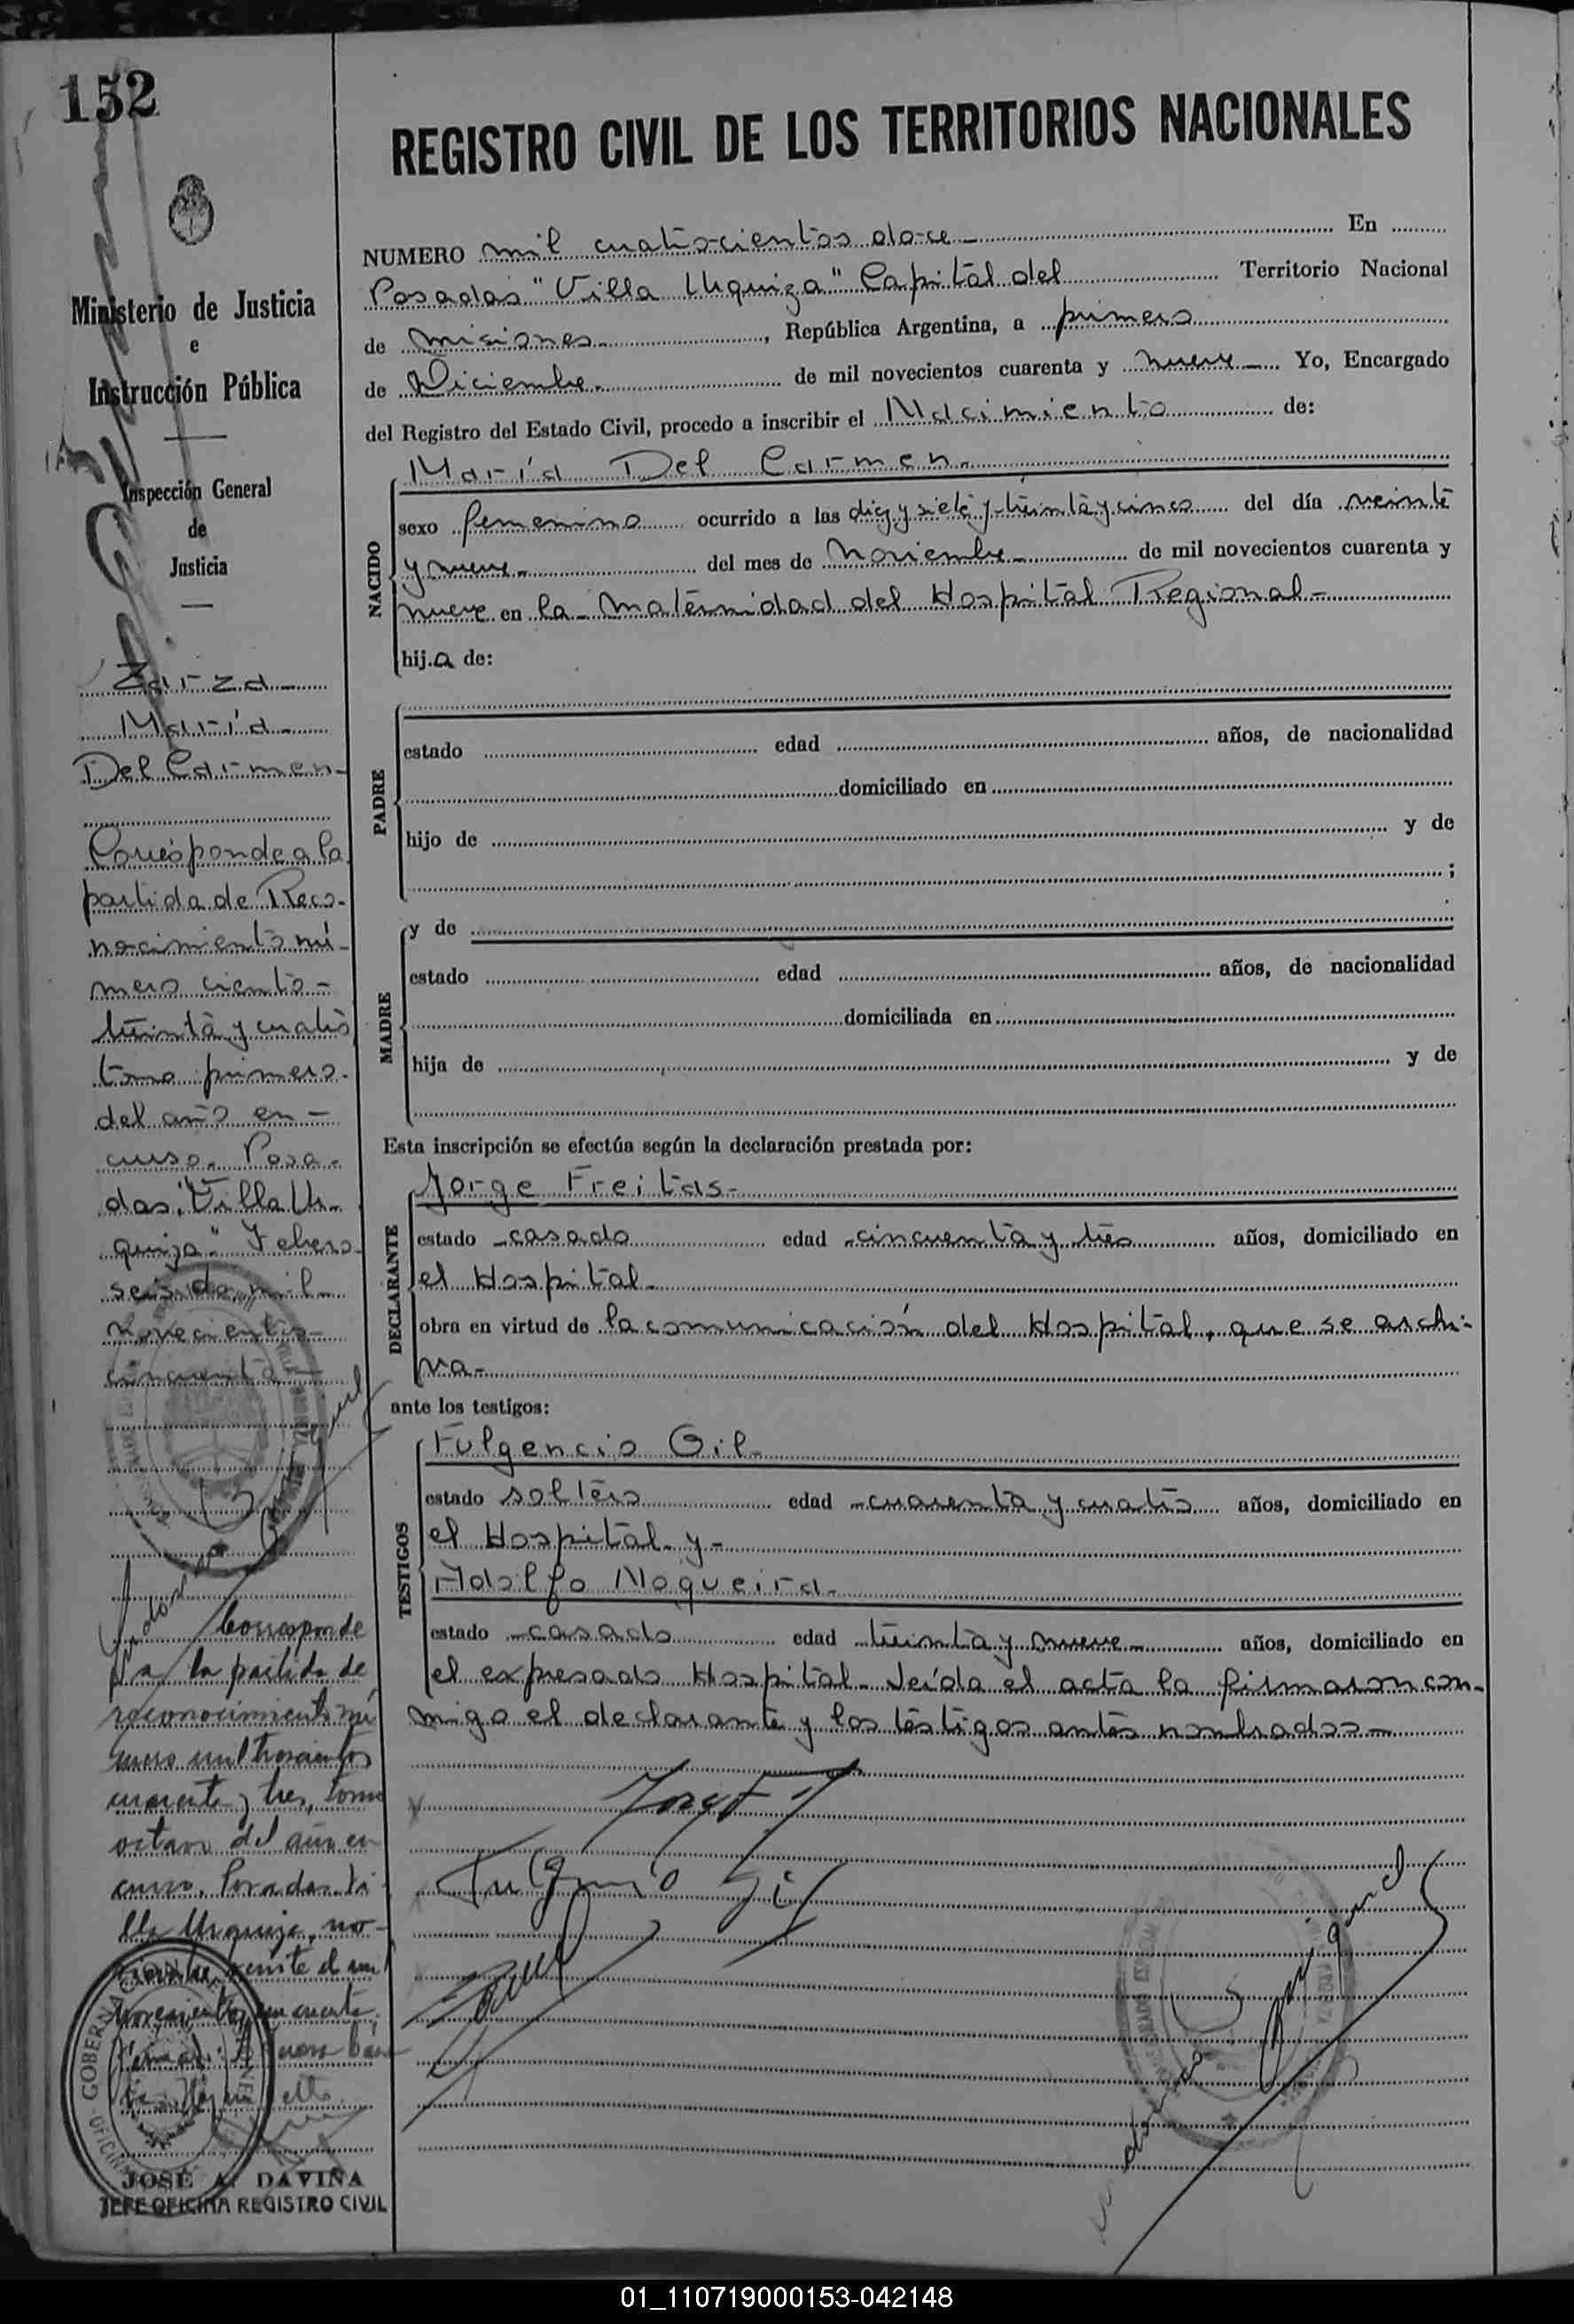 152
REGISTRO CIVIL DE LOS TERRITORIOS NACIONALES
Ministerio de Justicia
e
Instrucción Pública
Inspección General
de
Justicia
Zarza
María
Del Carmen-
Corresponde a la
partida de Reco-
nocimiento nú-
mero ciento-
treinta y cuatro
tomo primero.
del año en-
curso. Posa-
das, "Villa Ur-
quiza" Febero
seis de mil
novecientos
cincuenta-
Corresponde
a la partida de
reconocimiento nú
mero mil trescientos
cuarenta y tres, tomo
octavo del año en
curso. Posadas Vi
lla Urquiza, no-
JOSÉ A. DAVIÑA
JEFE OFICINA REGISTRO CIVIL
NUMERO mil cuatrocientos doce En
Posadas "Villa Urquiza" Capital del Territorio Nacional
de Misiones, República Argentina, a primero
de Diciembre de mil novecientos cuarenta y nueve Yo, Encargado
del Registro del Estado Civil, procedo a inscribir el Nacimiento de:
María Del Carmen
NACIDO
sexo femenino ocurrido a las diez y siete y treinta y cinco del día veinte
y nueve del mes de Noviembre de mil novecientos cuarenta y
nueve en la Maternidad del Hospital Regional
hija de:
PADRE
estado edad años, de nacionalidad
domiciliado en
hijo de y de
;
MADRE
y de
estado edad años, de nacionalidad
domiciliada en
hija de y de
Esta inscripción se efectúa según la declaración prestada por:
DECLARANTE
Jorge Freitas
estado casado edad cincuenta y tres años, domiciliado en
el Hospital
obra en virtud de la comunicación del Hospital, que se archi-
va-
ante los testigos:
TESTIGOS
Fulgencio Gil
estado soltero edad cuarenta y cuatro años, domiciliado en
el Hospital y-
Adolfo Nogueira
estado casado edad treinta y nueve años, domiciliado en
el expresado Hospital. Leída el acta la firmaron con-
migo el declarante y los testigos antes nombrados-
Fulgencio Gil
01_110719000153-042148